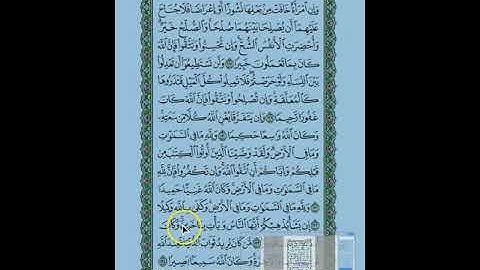 وَإِنِ ٱمْرَأَةٌ خَافَتْ مِنۢ بَعْلِهَا نُشُوزًا أَوْ إِعْرَاضًا فَلَا جُنَاحَ
عَلَيْهِمَآ أَن يُصْلِحَا بَيْنَهُمَا صُلْحًا وَٱلصُّلْحُ خَيْرٌ
وَأُحْضِرَتِ ٱلْأَنفُسُ ٱلشُّحَّ وَإِن تُحْسِنُوا۟ وَتَتَّقُوا۟ فَإِنَّ ٱللَّهَ
كَانَ بِمَا تَعْمَلُونَ خَبِيرًا وَلَن تَسْتَطِيعُوٓا۟ أَن تَعْدِلُوا۟
بَيْنَ ٱلنِّسَآءِ وَلَوْ حَرَصْتُمْ فَلَا تَمِيلُوا۟ كُلَّ ٱلْمَيْلِ فَتَذَرُوهَا
كَٱلْمُعَلَّقَةِ وَإِن تُصْلِحُوا۟ وَتَتَّقُوا۟ فَإِنَّ ٱللَّهَ كَانَ
غَفُورًا رَّحِيمًا وَإِن يَتَفَرَّقَا يُغْنِ ٱللَّهُ كُلًّا مِّن سَعَتِهِۦ
وَكَانَ ٱللَّهُ وَٰسِعًا حَكِيمًا وَلِلَّهِ مَا فِى ٱلسَّمَٰوَٰتِ
وَمَا فِى ٱلْأَرْضِ وَلَقَدْ وَصَّيْنَا ٱلَّذِينَ أُوتُوا۟ ٱلْكِتَٰبَ مِن
قَبْلِكُمْ وَإِيَّاكُمْ أَنِ ٱتَّقُوا۟ ٱللَّهَ وَإِن تَكْفُرُوا۟ فَإِنَّ لِلَّهِ
مَا فِى ٱلسَّمَٰوَٰتِ وَمَا فِى ٱلْأَرْضِ وَكَانَ ٱللَّهُ غَنِيًّا حَمِيدًا
وَلِلَّهِ مَا فِى ٱلسَّمَٰوَٰتِ وَمَا فِى ٱلْأَرْضِ وَكَفَىٰ بِٱللَّهِ وَكِيلًا
إِن يَشَأْ يُذْهِبْكُمْ أَيُّهَا ٱلنَّاسُ وَيَأْتِ وَكَانَ
مَّن كَانَ يُرِيدُ ثَوَابَ ٱللَّهِ
وَكَانَ ٱللَّهُ سَمِيعًۢا بَصِيرًا